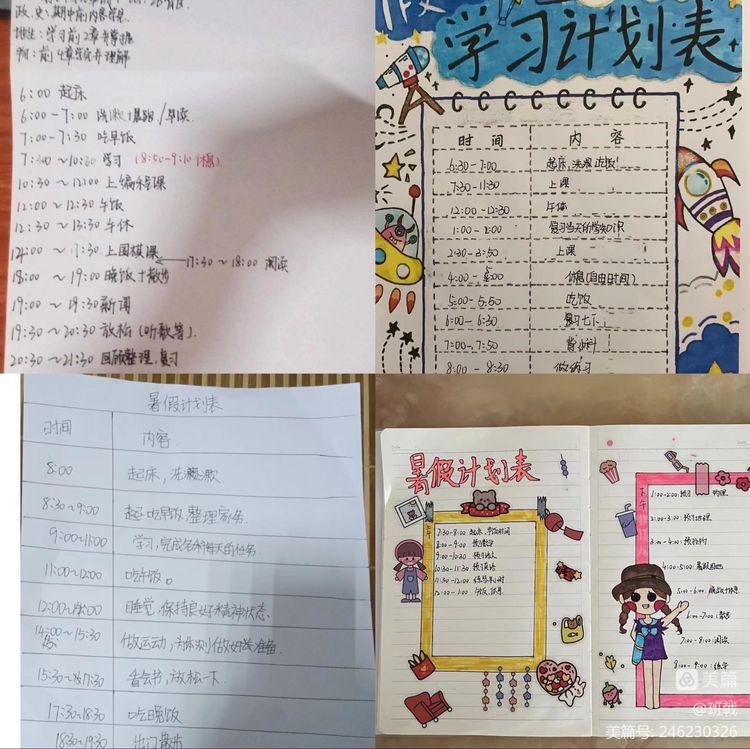 政、史：期中前内容背完
地生：学习前2章并掌握
物：前4章学会并理解
6:00 起床
6:00-7:00 洗漱+晨跑/早读
7:00-7:30 吃早饭
7:30～10:30 学习 (8:50-9:10休息)
10:30～12:00 上编程课
12:00～12:30 午饭
12:30～13:30 午休
14:00～17:30 上围棋课
17:30～18:00 阅读
18:00～19:00 晚饭+散步
19:00～19:30 新闻
19:30～20:30 放松(听歌等).
20:30～21:30 回顾整理、复习
假
学习计划表
时间 内容
6:30-7:00 起床、洗漱、吃饭
7:30-11:30 上课
12:00-12:30 午休
1:00- 复习当天所学知识
2:30-3:50 上课
4:00-5:00 休息(自由时间)
5:00-5:50 吃饭
6:00-6:30 复习七下
7:00-7:50
8:00-8:30 做练习
暑假计划表
时间 内容
8:00 起床,洗漱
8:30~9:00 起吃早饭 整理家务.
9:00~11:00 学习,完成各科每天的任务
11:00~12:00 吃午饭。
12:00~14:00 睡觉,保持良好精神状态
14:00~15:30 做运动,为体测做好准备
15:30~17:30 看会书,放松一下
17:30~18:30 吃晚饭
18:30~19:30 出门散步
暑假计划表
上午
7:30-8:00 起床、早饭时间
8:00-9:00 预习数学
9:00-10:20 预习语文
10:30-11:30 预习英语
11:30-12:00 练琴小时
12:00-1:00 午饭、休息
下午
1:00-2:00:预习物理
2:00-3:00:预习地理
3:00-4:00:预习生物
4:00-5:00:暑假作业
5:00-6:00:晚饭+休息
6:00-7:00:散步
7:00-8:00:阅读
8:00-9:00:练字
美篇
@班戟
美篇号: 246230326